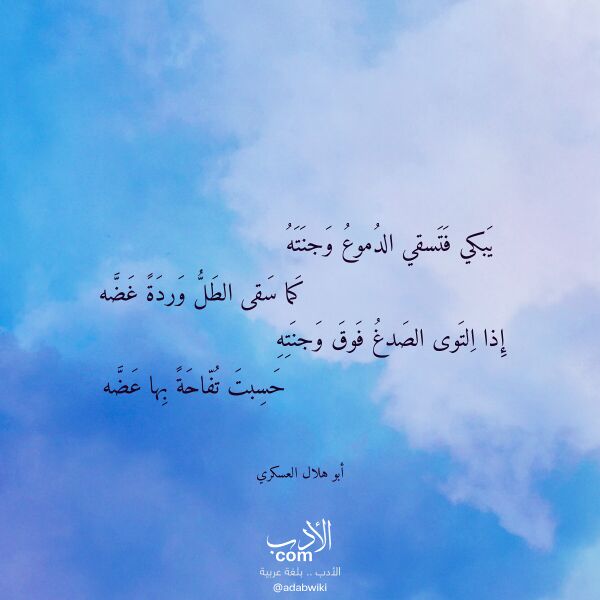 يَبكي فَتَسقي الدُموعُ وَجنَتَهُ
كَما سَقى الطَلُّ وَردَةً غَضَّه
إِذا اِلتَوى الصَدغُ فَوقَ وَجنَتِهِ
حَسِبتَ تُفّاحَةً بِها عَضَّه
أبو هلال العسكري
الأدب
com
الأدب .. بلغة عربية
@adabwiki